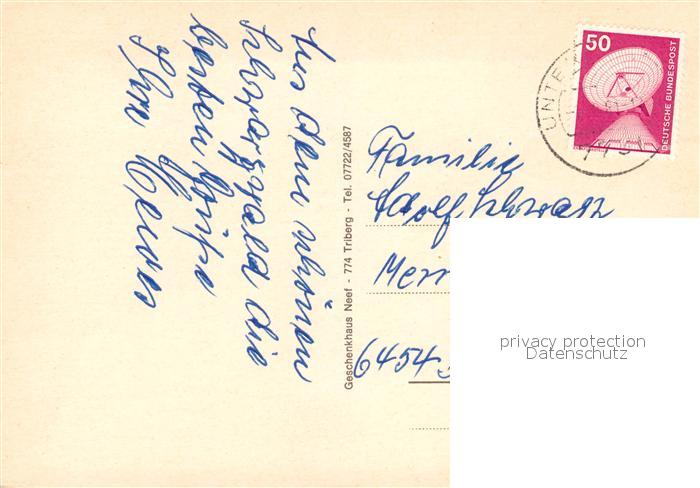 Aus dem schönen
Schwarzwald die
besten Grüße
Ihre
Geschenkhaus Neef - 774 Triberg - Tel. 07722/4587
50
DEUTSCHE BUNDESPOST
UNTE
Familie
Adolf Schwarz
6454
privacy protection
Datenschutz